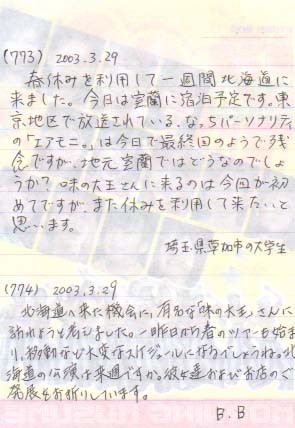 (773) 2003.3.29
春休みを利用して一週間北海道に
来ました。今日は室蘭に宿泊予定です。東
京地区で放送されている、なっちパーソナリティ
の「エアモニ。」は今日で最終回のようで残
念ですが、地元室蘭ではどうなのでしょ
うか? 味の大王さんに来るのは今回が初
めてですが、また休みを利用して来たいと
思います。
埼玉県草加市の大学生
(774) 2003.3.29
北海道へ来た機会に、有名な「味の大王」さんに
訪れようと思いました。一昨日から春のツアーも始ま
り、移動など大変なスケジュールになるでしょうね。北
海道の公演は来週ですか。彼女達およびお店のご
発展をお祈りしています。
B.B